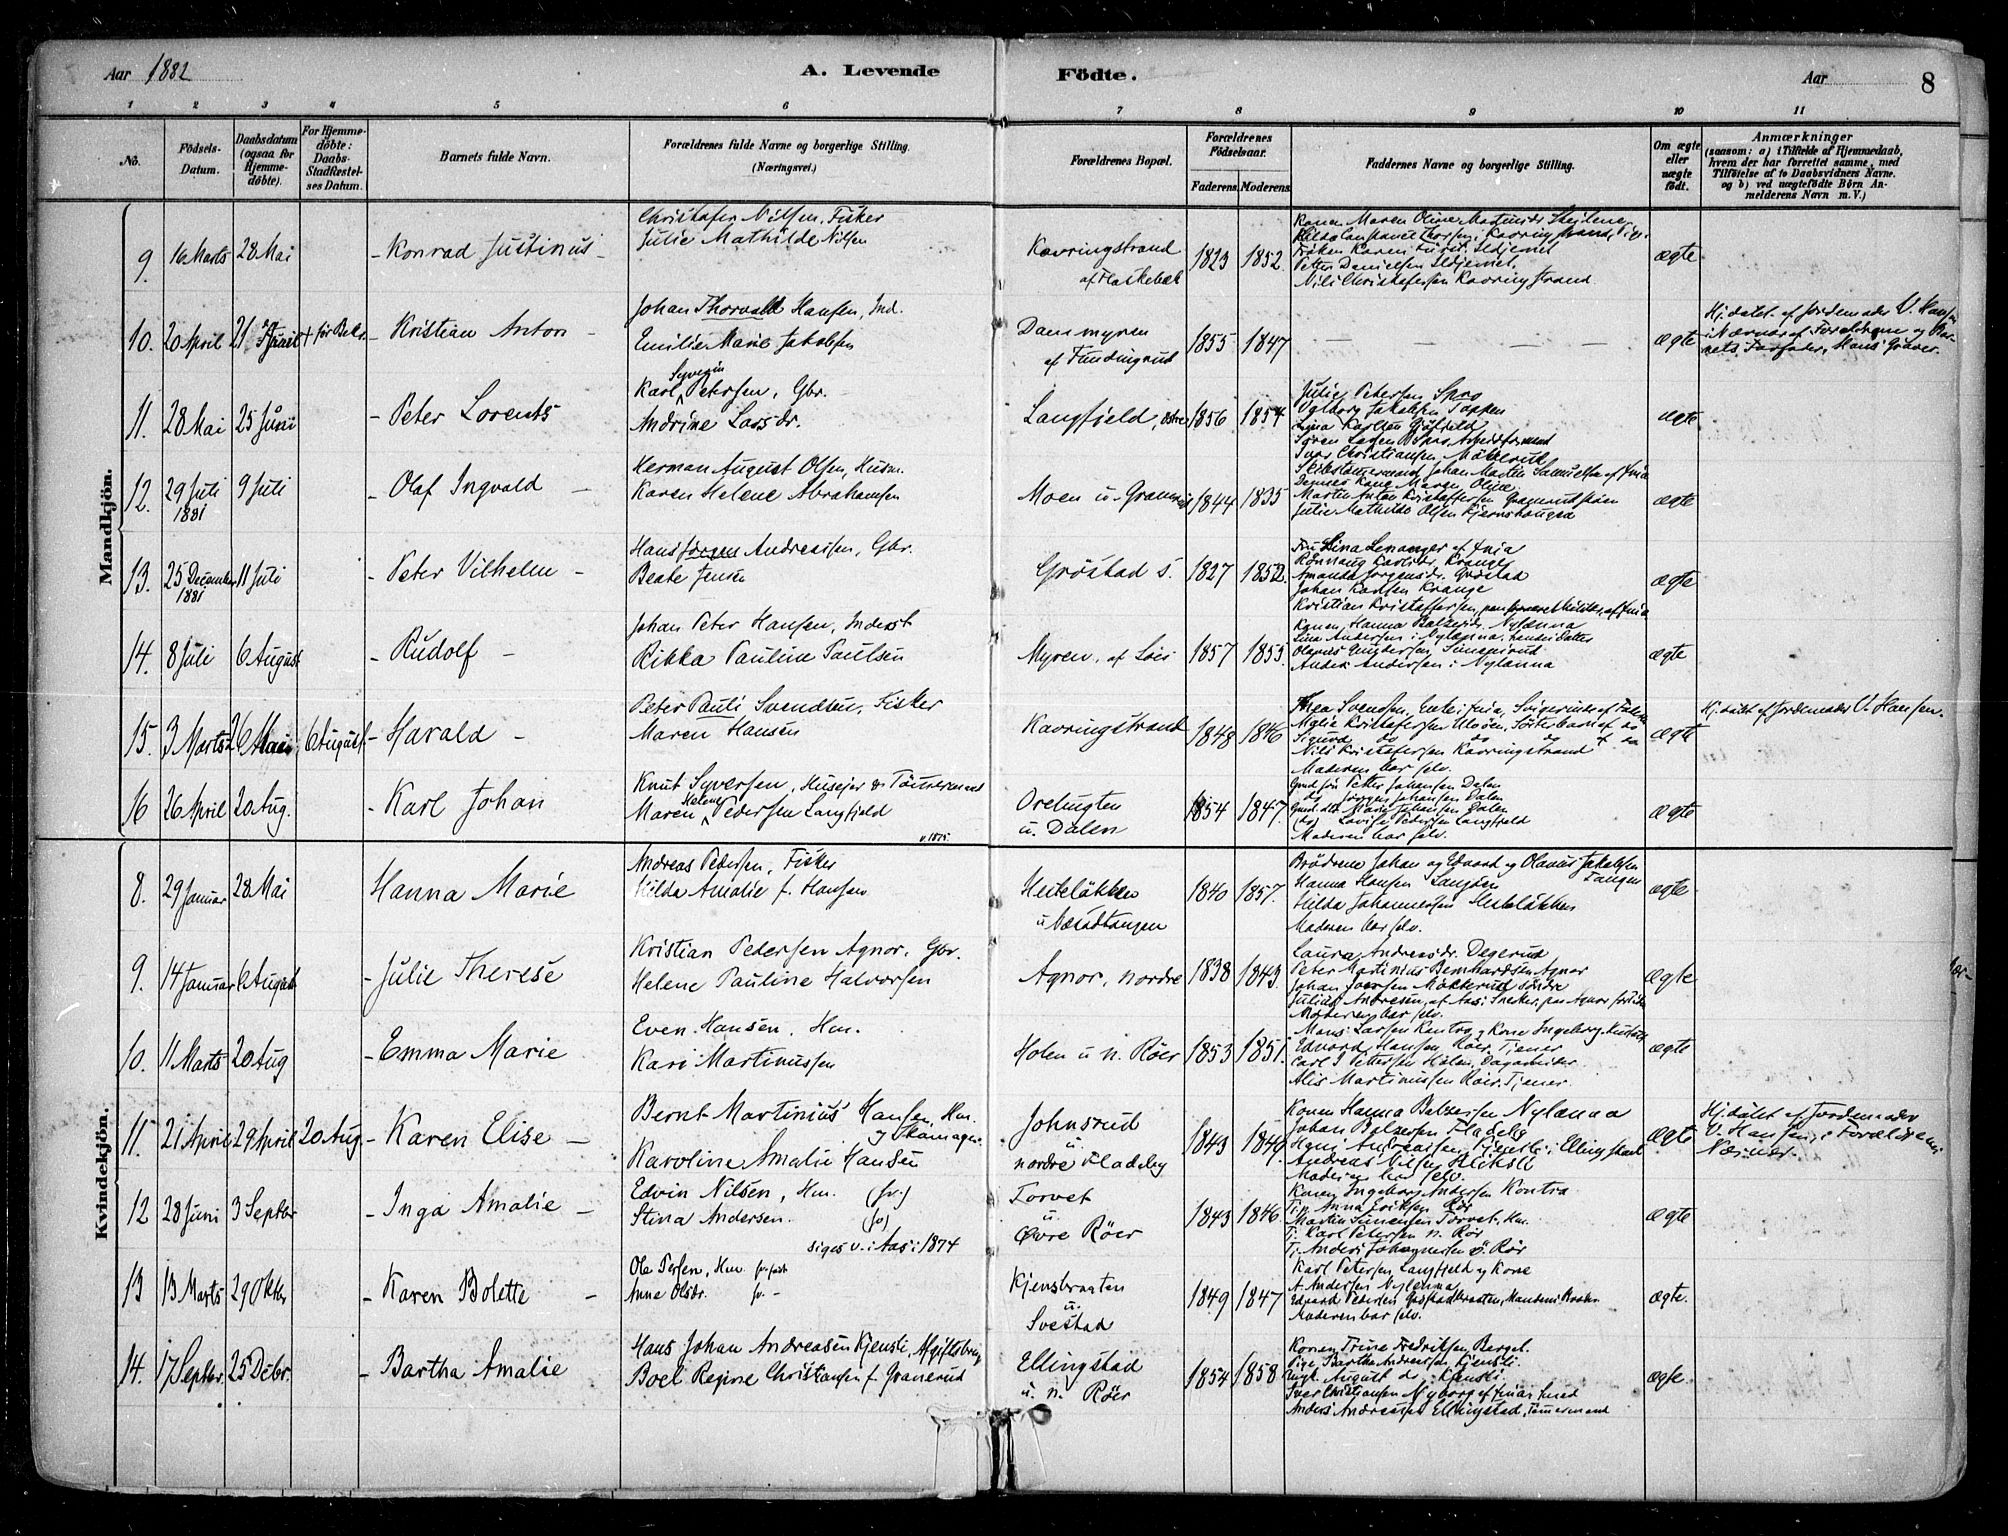 Aar 1882
A. Levende Födte.
Aar 8
1 2 3 4 5 6 7 8 9 10 11
No.
Födsels-Datum.
Daabsdatum (ogsaa for Hjemme-döbte).
For Hjemme-döbte: Daabs-Stadfæstel-ses Datum.
Barnets fulde Navn.
Forældrenes fulde Navne og borgerlige Stilling. (Næringsvei.)
Forældrenes Bopæl.
Forældrenes Födselsaar.
Faderens. Moderens.
Faddernes Navne og borgerlige Stilling.
Om ægte eller uægte födt.
Anmærkninger (saasom: a) i Tilfælde af Hjemmedaab, hvem der har forrettet samme, med Tilföielse af to Daabsvidners Navne. og b) ved uægtefödte Börn An-melderens Navn m.V.)
Mandkjön.
9. 16 Marts 28 Mai - Konrad Justinus -
Christofer Nilsen, Fisker
Julie Mathilde Nilsen
Kavringstrand
af Flaskebæk
1823 1852.
Petter Danielsen Ildjernet.
Nils Christofersen Kavringstrand.
ægte
10. 20 April 21 April + før Bekr. - Kristian Anton -
Johan Thorvald Hansen, Ind.
Emilie Marie Jakobsen
Dammyren
af Fundingrud
1855 1847
ægte
Hj.døbt af Jordemoder V. Hansen
i Nærvær af Forældrene og Bar-
nets Farfader, Hans Graver.
11. 28 Mai 25 Juni - Peter Lorents
Karl Syverin Petersen, Gbr.
Andrine Larsdr.
Langfjeld, østre
1856 1854
Julie Petersen Spro
Valborg Jakobsen Toppen
Lina Karlsen
Sören Larsen Spro, Arbeidsformand
Iver Christiansen
ægte
12. 29 Juli 1881 9 Juli - Olaf Ingvald -
Herman August Olsen, Husm.
Karen Helene Abrahamsen
Moen u. Granerud
1844 1835
Skibstømmermand Johan Martin Samuelsen af
Dennes Kone Maren Oline
Martin Anton Kristoffersen Granerudstøen
Julie Mathilde Olsen Kjernshaugen
ægte
13. 25 December 1881 11 Juli - Peter Vilhelm -
Hans Jørgen Andreassen, Gbr.
Beate Jensen
Grøstad s.
1827 1852.
Rönnaug Karlsdr. Krange
Amanda Jørgensdr. Grøstad
Johan Karlsen Krange
ægte
14. 8 Juli 6 August - Rudolf -
Johan Peter Hansen, Inderst
Rikka Pauline Paulsen
Myren, af
1857 1855.
Konen Hanna Balzersdr. Nylænna
Lina Andersen i Nylænna
Anders Andersen i Nylænna
ægte
15. 3 Marts 26 Mai 6 August. - Harald -
Peter Pauli Svendsen, Fisker
Maren Hansen
Kavringstrand
1848 1846
Thea Svendsen
Nils Kristofersen Kavringstrand
Moderen bar selv.
ægte
Hj.døbt af Jordemoder V. Hansen.
16 26 April 20 Aug. - Karl Johan
Knut Syversen, Huseier & Tømmermand
Maren Helene Pedersen Langfjeld
v. 1875.
Orebugten
u. Dalen
1854 1847.
Petter Johansen Dalen
do Jörgen Johansen Dalen
Marie Johansen Dalen
do Lovise Pedersen Langfjeld
Moderen bar selv.
ægte
Kvindekjön.
8. 29 Januar 28 Mai Hanna Marie
Andreas Pedersen, Fisker
Hilda Amalie f. Hansen
Hesteløkken
u. Næsodtangen
1840 1857.
Brødrene Johan og Edvard og Olavus Jakobsen
Tangen
Hanna Hansen Langøen
Hilda Johannessen Hesteløkken
Moderen bar selv.
ægte
9. 14 Januar 6 August - Julie Therese
Kristian Pedersen Agnor, Gbr.
Helene Pauline Halvorsen
Agnor, nordre
1838 1843.
Laura Andreasdr. Degerud
Peter Martinius Bernhardsen Agnor
Johan Iversen Mökkerud søndre
Moderen bar selv.
ægte
10. 11 Marts 20 Aug - Emma Marie
Even Hansen, Hm.
Kari Martinussen
Holen u. n. Röer
1853 1851.
Hans Larsen Kontra og Kone Ingeborg
Edvard Hansen Röer, Tjener
Carl J Pettersen Holen, Dagarbeider
Alis Martinussen Roer, Tjener.
ægte
11. 21 April 29 April 20 Aug. - Karen Elise -
Bernt Martinius Hansen, Hm.
og Skomager
Karoline Amalie Hansen
Johnsrud
u.
nordre Fladeby
1843 1846
Konen Hanna Balzersen Nylænna
Johan Balzersen Fladeby
Hans Andreassen Kjensli i Ellingstad
Andreas Nilsen
Moderen bar selv.
ægte
Hj.döbt af Jordemoder
V. Hansen i Forældrenes
Nærvær.
12 28 Juni 3 Septbr - Inga Amalie -
Edvin Nilsen, Hm. (fv.)
Stina Andersen. (fv)
siges v. i Aas i 1874
Torvet
u.
Øvre Röer
1843 1846
Konen Ingeborg Andersen Kontra.
Tj. Anna Eriksen Rör
Martin Simensen Torvet, Hm.
Tj. Karl Petersen n. Rör
Tj. Anders Johannessen ö. Rör
ægte
13 13 Marts 29 Oktbr - Karen Bolette -
Ole Persen, Hm.
Anne Olsdr.
Kjensbraaten
u.
Svestad
1849 1847
Karl Petersen Langfjeld og Kone
A. Andersen Nylænna
Moderen bar selv.
ægte.
14. 17 Septbr. 25 Debr. - Bartha Amalie
Hans Johan Andreasen Kjensli, Afgiftsbrug
Boel Regine Christiansen f. Granerud
Ellingstad
u. n. Röer
1854 1858
Konen Trine Fredriksen Berget.
Pige Bartha Andreasen Kjensli.
Ungk. August do Kjensli.
Iver Christiansen Nyborg
Anders Andreassen Ellingstad, Tømmermand
ægte.